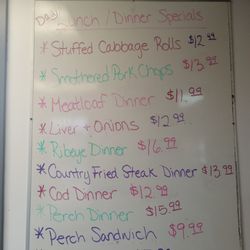 Daily Lunch / Dinner Specials
* Stuffed Cabbage Rolls $12.99
* Smothered Pork Chops $13.99
* Meatloaf Dinner $11.99
* Liver + Onions $12.99
* Ribeye Dinner $16.99
* Country Fried Steak Dinner $13.99
* Cod Dinner $12.99
* Perch Dinner $15.99
* Perch Sandwich $9.99